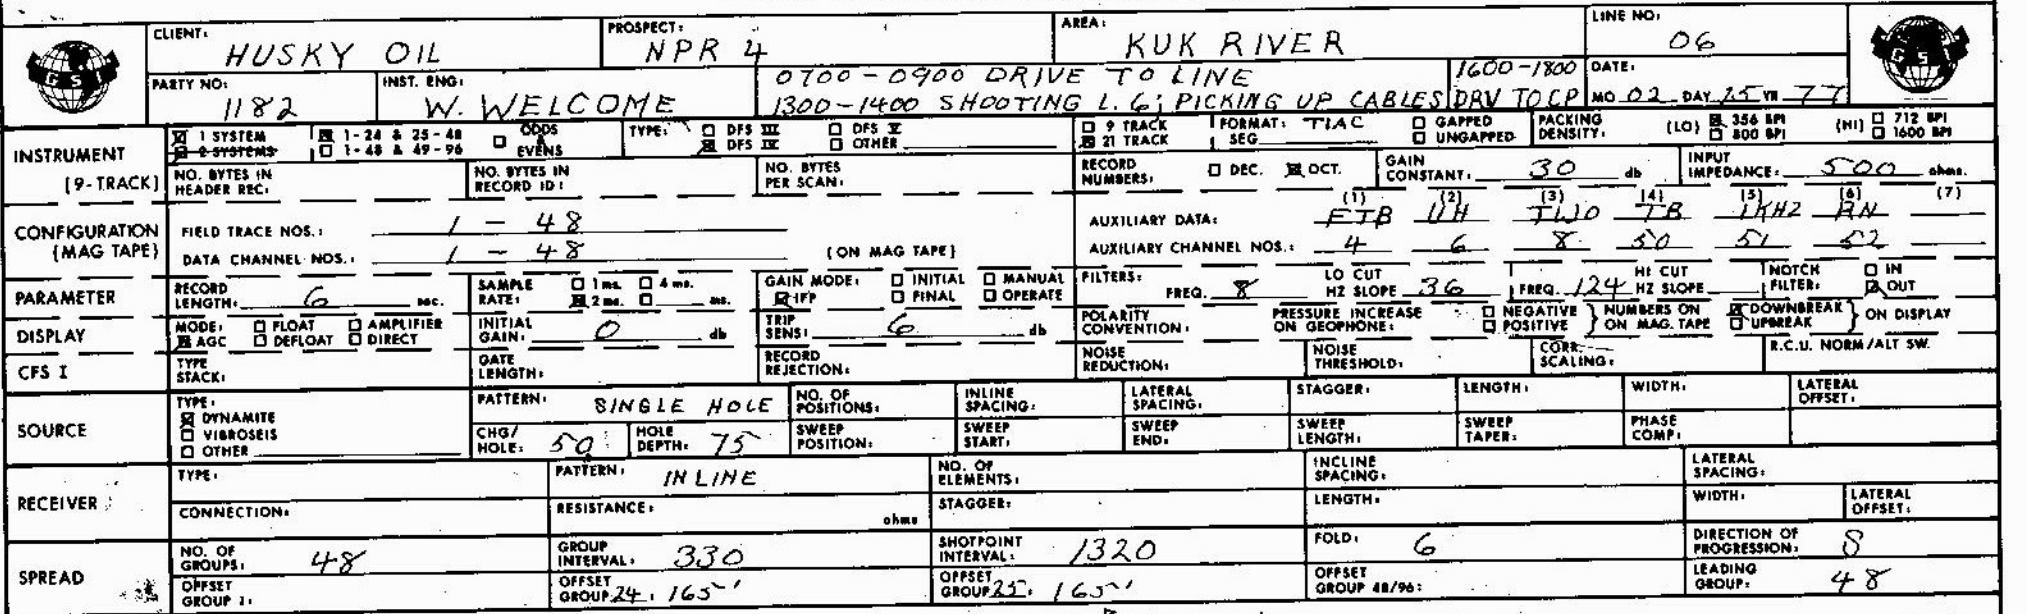 CLIENT: HUSKY OIL PROSPECT: NPR 4 AREA: KUK RIVER LINE NO: 06
GSI GSI
PARTY NO: 1182 INST. ENG: W. WELCOME 0700-0900 DRIVE TO LINE 1600-1800 DATE:
1300-1400 SHOOTING L. 6; PICKING UP CABLES DRV TO CP MO 02 DAY 25 YR 77
INSTRUMENT 1 SYSTEM 1-24 & 25-48 ODDS & EVENS TYPE: DFS III DFS V 9 TRACK FORMAT: TIAC GAPPED PACKING DENSITY: (LO) 356 BPI (HI) 712 BPI
2 SYSTEMS 1-48 & 49-96 DFS IV OTHER 21 TRACK SEG UNGAPPED 800 BPI 1600 BPI
[9-TRACK] NO. BYTES IN HEADER REC: NO. BYTES IN RECORD ID: NO. BYTES PER SCAN: RECORD NUMBERS: DEC. OCT. GAIN CONSTANT: 30 db INPUT IMPEDANCE: 500 ohms.
(1) (2) (3) (4) (5) (6) (7)
CONFIGURATION FIELD TRACE NOS.: 1 - 48 AUXILIARY DATA: FTB UH TWO TB 1KHZ RN
[MAG TAPE] DATA CHANNEL NOS.: 1 - 48 (ON MAG TAPE) AUXILIARY CHANNEL NOS.: 4 6 8 50 51 52
PARAMETER RECORD LENGTH: 6 sec. SAMPLE RATE: 1 ms. 4 ms. 2 ms. ms. GAIN MODE: INITIAL MANUAL IFP FINAL OPERATE FILTERS: FREQ. 8 LO CUT HZ SLOPE 36 FREQ. 124 HI CUT HZ SLOPE NOTCH FILTER: IN OUT
DISPLAY MODE: FLOAT AMPLIFIER AGC DEFLOAT DIRECT INITIAL GAIN: 0 db TRIP SENS: 6 db POLARITY CONVENTION: PRESSURE INCREASE ON GEOPHONE: NEGATIVE POSITIVE } NUMBERS ON ON MAG. TAPE DOWNBREAK UPBREAK } ON DISPLAY
CFS I TYPE STACK: GATE LENGTH: RECORD REJECTION: NOISE REDUCTION: NOISE THRESHOLD: CORR. SCALING: R.C.U. NORM/ALT SW.
SOURCE TYPE: DYNAMITE VIBROSEIS OTHER PATTERN: SINGLE HOLE NO. OF POSITIONS: INLINE SPACING: LATERAL SPACING: STAGGER: LENGTH: WIDTH: LATERAL OFFSET:
CHG/HOLE: 50 HOLE DEPTH: 75 SWEEP POSITION: SWEEP START: SWEEP END: SWEEP LENGTH: SWEEP TAPER: PHASE COMP:
RECEIVER TYPE: PATTERN: IN LINE NO. OF ELEMENTS: INCLINE SPACING: LATERAL SPACING:
CONNECTION: RESISTANCE: ohms STAGGER: LENGTH: WIDTH: LATERAL OFFSET:
SPREAD NO. OF GROUPS: 48 GROUP INTERVAL: 330 SHOTPOINT INTERVAL: 1320 FOLD: 6 DIRECTION OF PROGRESSION: S
OFFSET GROUP 1: OFFSET GROUP 24: 165' OFFSET GROUP 25: 165' OFFSET GROUP 48/96: LEADING GROUP: 48